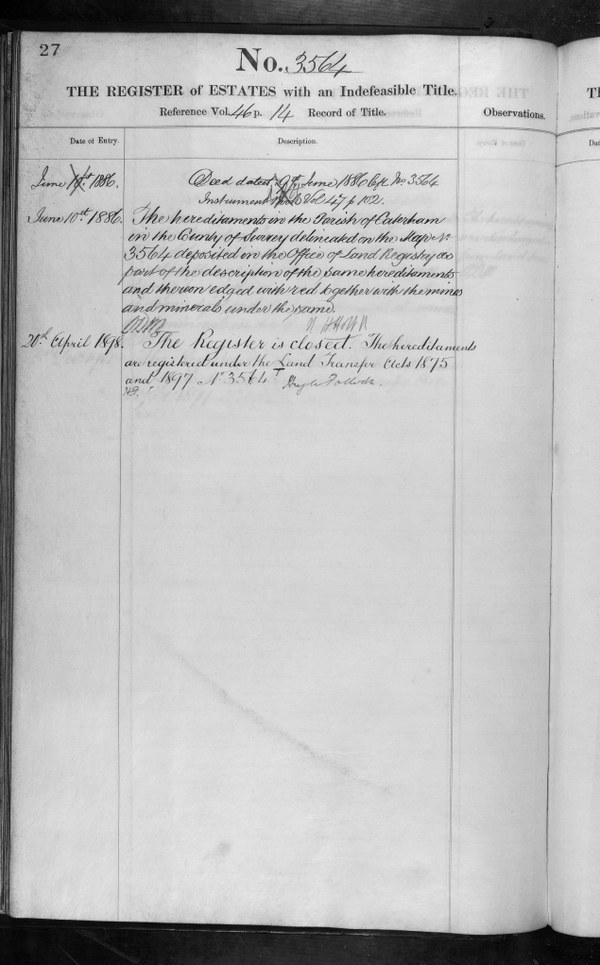 27
No. 3564
THE REGISTER of ESTATES with an Indefeasible Title.
Reference Vol. 46 p. 14 Record of Title.
Observations.
Date of Entry.
Description.
June 1886.
Deed dated 9th June 1886 No. 3564
Instrument Vol 47 p 102.
June 10th 1886.
The hereditaments in the Parish of Caterham
in the County of Surrey delineated on the Map No
3564 deposited in the Office of Land Registry as
part of the description of the same hereditaments
and thereon edged with red together with the mines
and minerals under the same.
20th April 1898.
The Register is closed. The hereditaments
are registered under the Land Transfer Acts 1875
and 1897 No 3564
Hugh Pollock